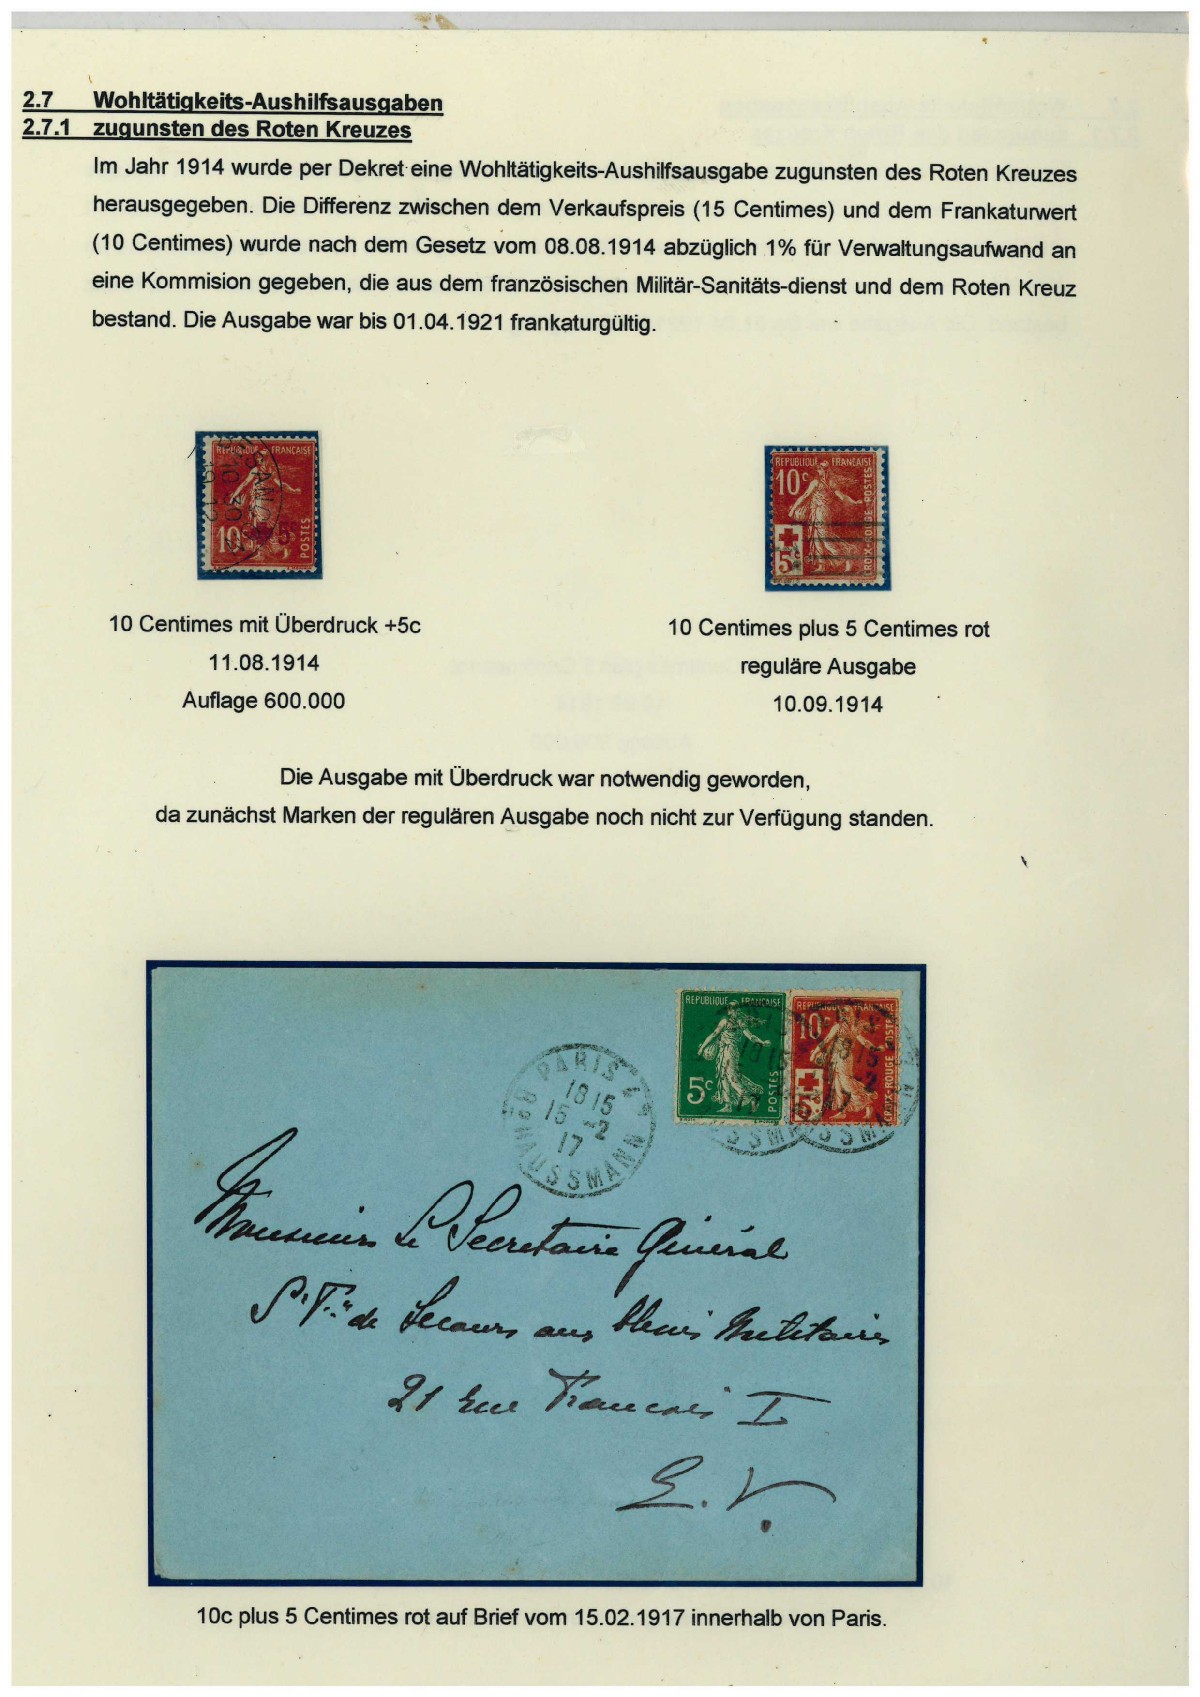 2.7 Wohltätigkeits-Aushilfsausgaben
2.7.1 zugunsten des Roten Kreuzes
Im Jahr 1914 wurde per Dekret eine Wohltätigkeits-Aushilfsausgabe zugunsten des Roten Kreuzes
herausgegeben. Die Differenz zwischen dem Verkaufspreis (15 Centimes) und dem Frankaturwert
(10 Centimes) wurde nach dem Gesetz vom 08.08.1914 abzüglich 1% für Verwaltungsaufwand an
eine Kommision gegeben, die aus dem französischen Militär-Sanitäts-dienst und dem Roten Kreuz
bestand. Die Ausgabe war bis 01.04.1921 frankaturgültig.
REPUBLIQUE FRANÇAISE
10c
5c
POSTES
REPUBLIQUE FRANÇAISE
10c
5c
CROIX-ROUGE-POSTES
10 Centimes mit Überdruck +5c
11.08.1914
Auflage 600.000
10 Centimes plus 5 Centimes rot
reguläre Ausgabe
10.09.1914
Die Ausgabe mit Überdruck war notwendig geworden,
da zunächst Marken der regulären Ausgabe noch nicht zur Verfügung standen.
REPUBLIQUE FRANÇAISE
5c
POSTES
REPUBLIQUE FRANÇAISE
10c
5c
CROIX-ROUGE POSTES
PARIS
18 15
15 -2
17
Bd HAUSSMANN
Monsieur Le Secretaire Général
de Secours aux Militaires
21 rue Francois I
E. V.
10c plus 5 Centimes rot auf Brief vom 15.02.1917 innerhalb von Paris.